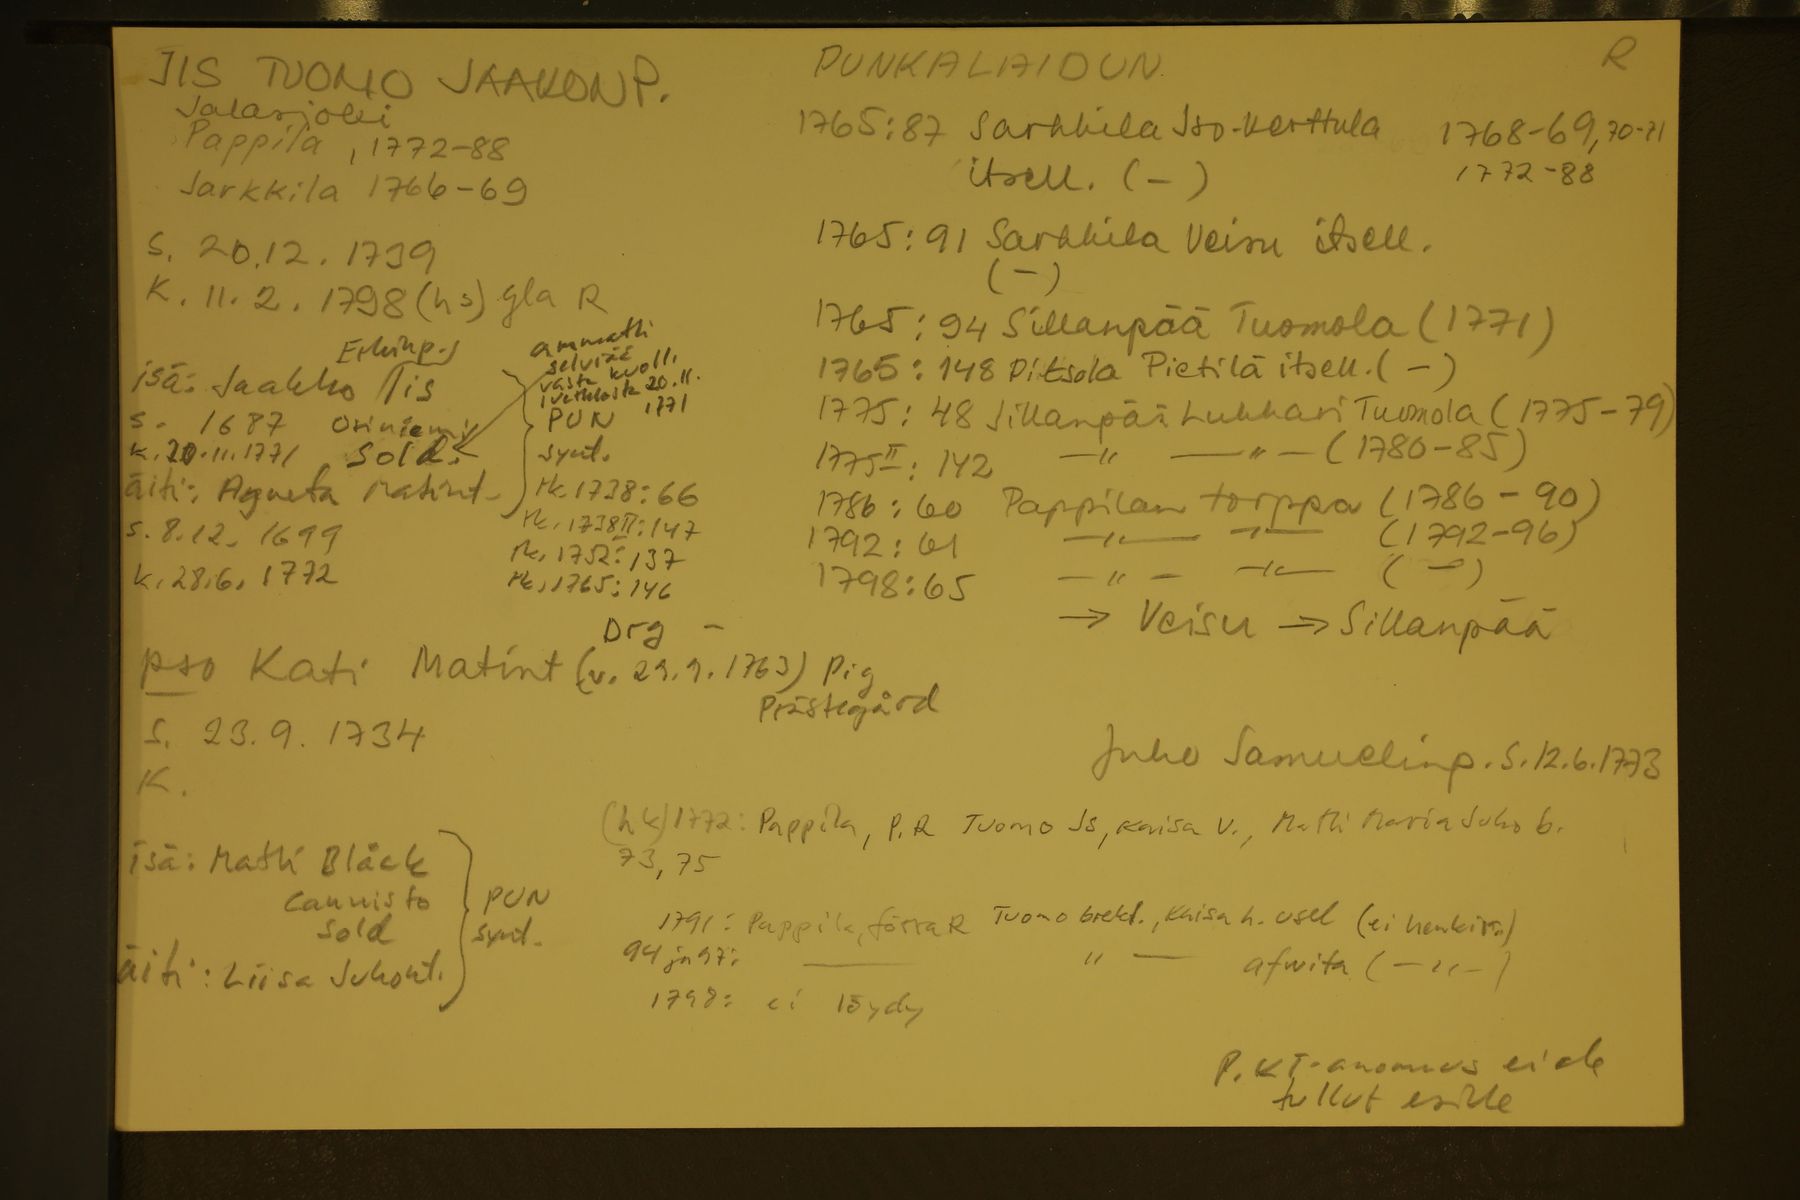 IIS TUOMO JAAKONP.
Jalasjoki
Pappila, 1772-88
Sarkkila 1766-69
s. 20.12. 1739
K. 11. 2. 1798 (hs) gla R
Erkinp.
isä: Jaakko Iis
s. 1687 Oriniemi
k. 20.11.1771 sold.
äiti: Agneta Matint.
s. 8.12. 1699
k. 28.6. 1772
ammatti
selviää
vasta kuoll.
20.11.
1771
PUN
synt.
rk. 1738: 66
rk. 1738 II: 147
rk. 1752: 137
rk. 1765: 146
Drg -
pso Kati Matint (v. 29.9. 1763) Pig
Prästegård
s. 23. 9. 1734
K.
isä: Matti Bläck
Cannisto
sold
äiti: Liisa Juhont.
PUN
synt.
PUNKALAIDUN R
1765:87 Sarkkila Iso-Kerttula 1768-69, 70-71
itsell. (-) 1772-88
1765: 91 Sarkkila Veisu itsell.
(-)
1765: 94 Sillanpää Tuomola (1771)
1765: 148 Pitsola Pietilä itsell. (-)
1775: 48 Sillanpää Luhhari Tuomola (1775-79)
1775 II: 142 -"- -"- (1780-85)
1786: 60 Pappilan torppa (1786-90)
1792: 61 -"- -"- (1792-96)
1798: 65 -"- -"- (-)
→ Veisu → Sillanpää
Juho Samuelinp. s. 12.6.1773
(hk) 1772: Pappila, P.R Tuomo Is, Kaisa V., Matti Maria Juho b.
73, 75
1791: Pappila, förra R Tuomo bräkl., Kaisa h. usel (ei henkir.)
94 ja 97: — " — afwita (-"-)
1798: ei löydy
P. KI-anomus ei ole
tullut esille